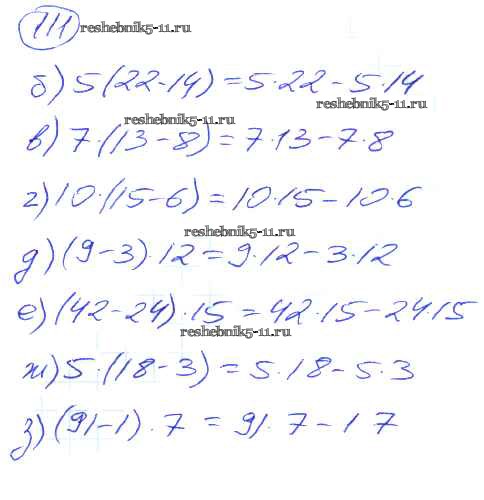 111 reshebnik5-11.ru
б) 5(22-14) = 5·22 - 5·14
reshebnik5-11.ru
reshebnik5-11.ru
в) 7·(13-8) = 7·13 - 7·8
г) 10·(15-6) = 10·15 - 10·6
reshebnik5-11.ru
д) (9-3)·12 = 9·12 - 3·12
е) (42-24)·15 = 42·15 - 24·15
reshebnik5-11.ru
ж) 5·(18-3) = 5·18 - 5·3
з) (91-1)·7 = 91·7 - 1 7